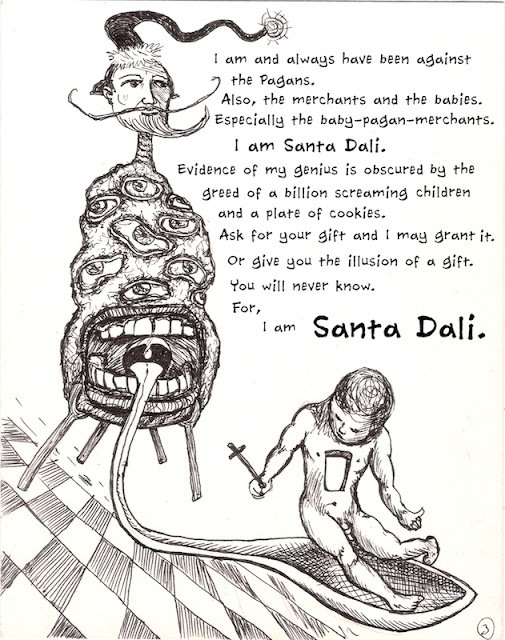 I am and always have been against
the Pagans.
Also, the merchants and the babies.
Especially the baby-pagan-merchants.
I am Santa Dali.
Evidence of my genius is obscured by the
greed of a billion screaming children
and a plate of cookies.
Ask for your gift and I may grant it.
Or give you the illusion of a gift.
You will never know.
For,
I am Santa Dali.
3